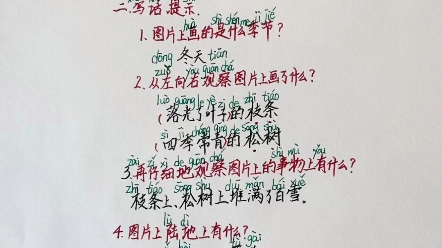 二、写话提示
huà shì shén me jì jié
1. 图片上画的是什么季节?
dōng tiān
冬天
zuǒ yòu guān chá
2. 从左向右观察图片上画了什么?
luò guāng le yè zi de zhī tiáo
(落光了叶子的枝条
sì jì cháng qīng de sōng shù
(四季常青的松树
zài zǐ xì de guān chá shì wù yǒu
3. 再仔细地观察图片上的事物上有什么?
zhī tiáo sōng shù duī mǎn bái xuě
枝条上、松树上堆满了白雪。
lù dì
4. 图片上陆地上有什么?